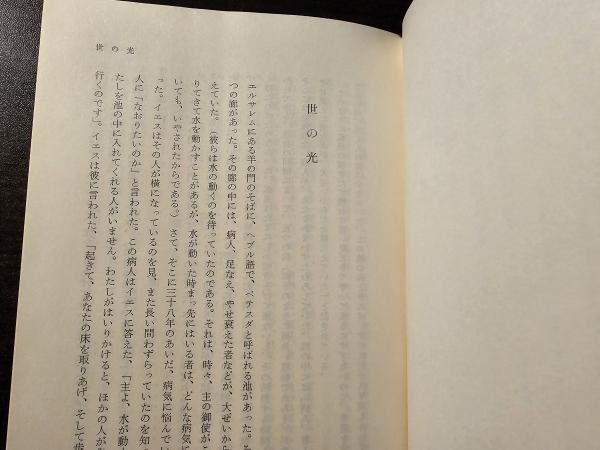 世の光
世の光
エルサレムにある羊の門のそばに、ヘブル語で、ベテスダと呼ばれる池があった。そ
つの廊があった。その廊の中には、病人、足なえ、やせ衰えた者などが、大ぜいから
えていた。（彼らは水の動くのを待っていたのである。それは、時々、主の御使がこ
りてきて水を動かすことがあるが、水が動いた時まっ先にはいる者は、どんな病気に
いても、いやされたからである。）さて、そこに三十八年のあいだ、病気に悩んでい
った。イエスはその人が横になっているのを見、また長い間わずらっていたのを知
人に「なおりたいのか」と言われた。この病人はイエスに答えた、「主よ、水が動
たしを池の中に入れてくれる人がいません。わたしがはいりかけると、ほかの人が
行くのです」。イエスは彼に言われた、「起きて、あなたの床を取りあげ、そして歩